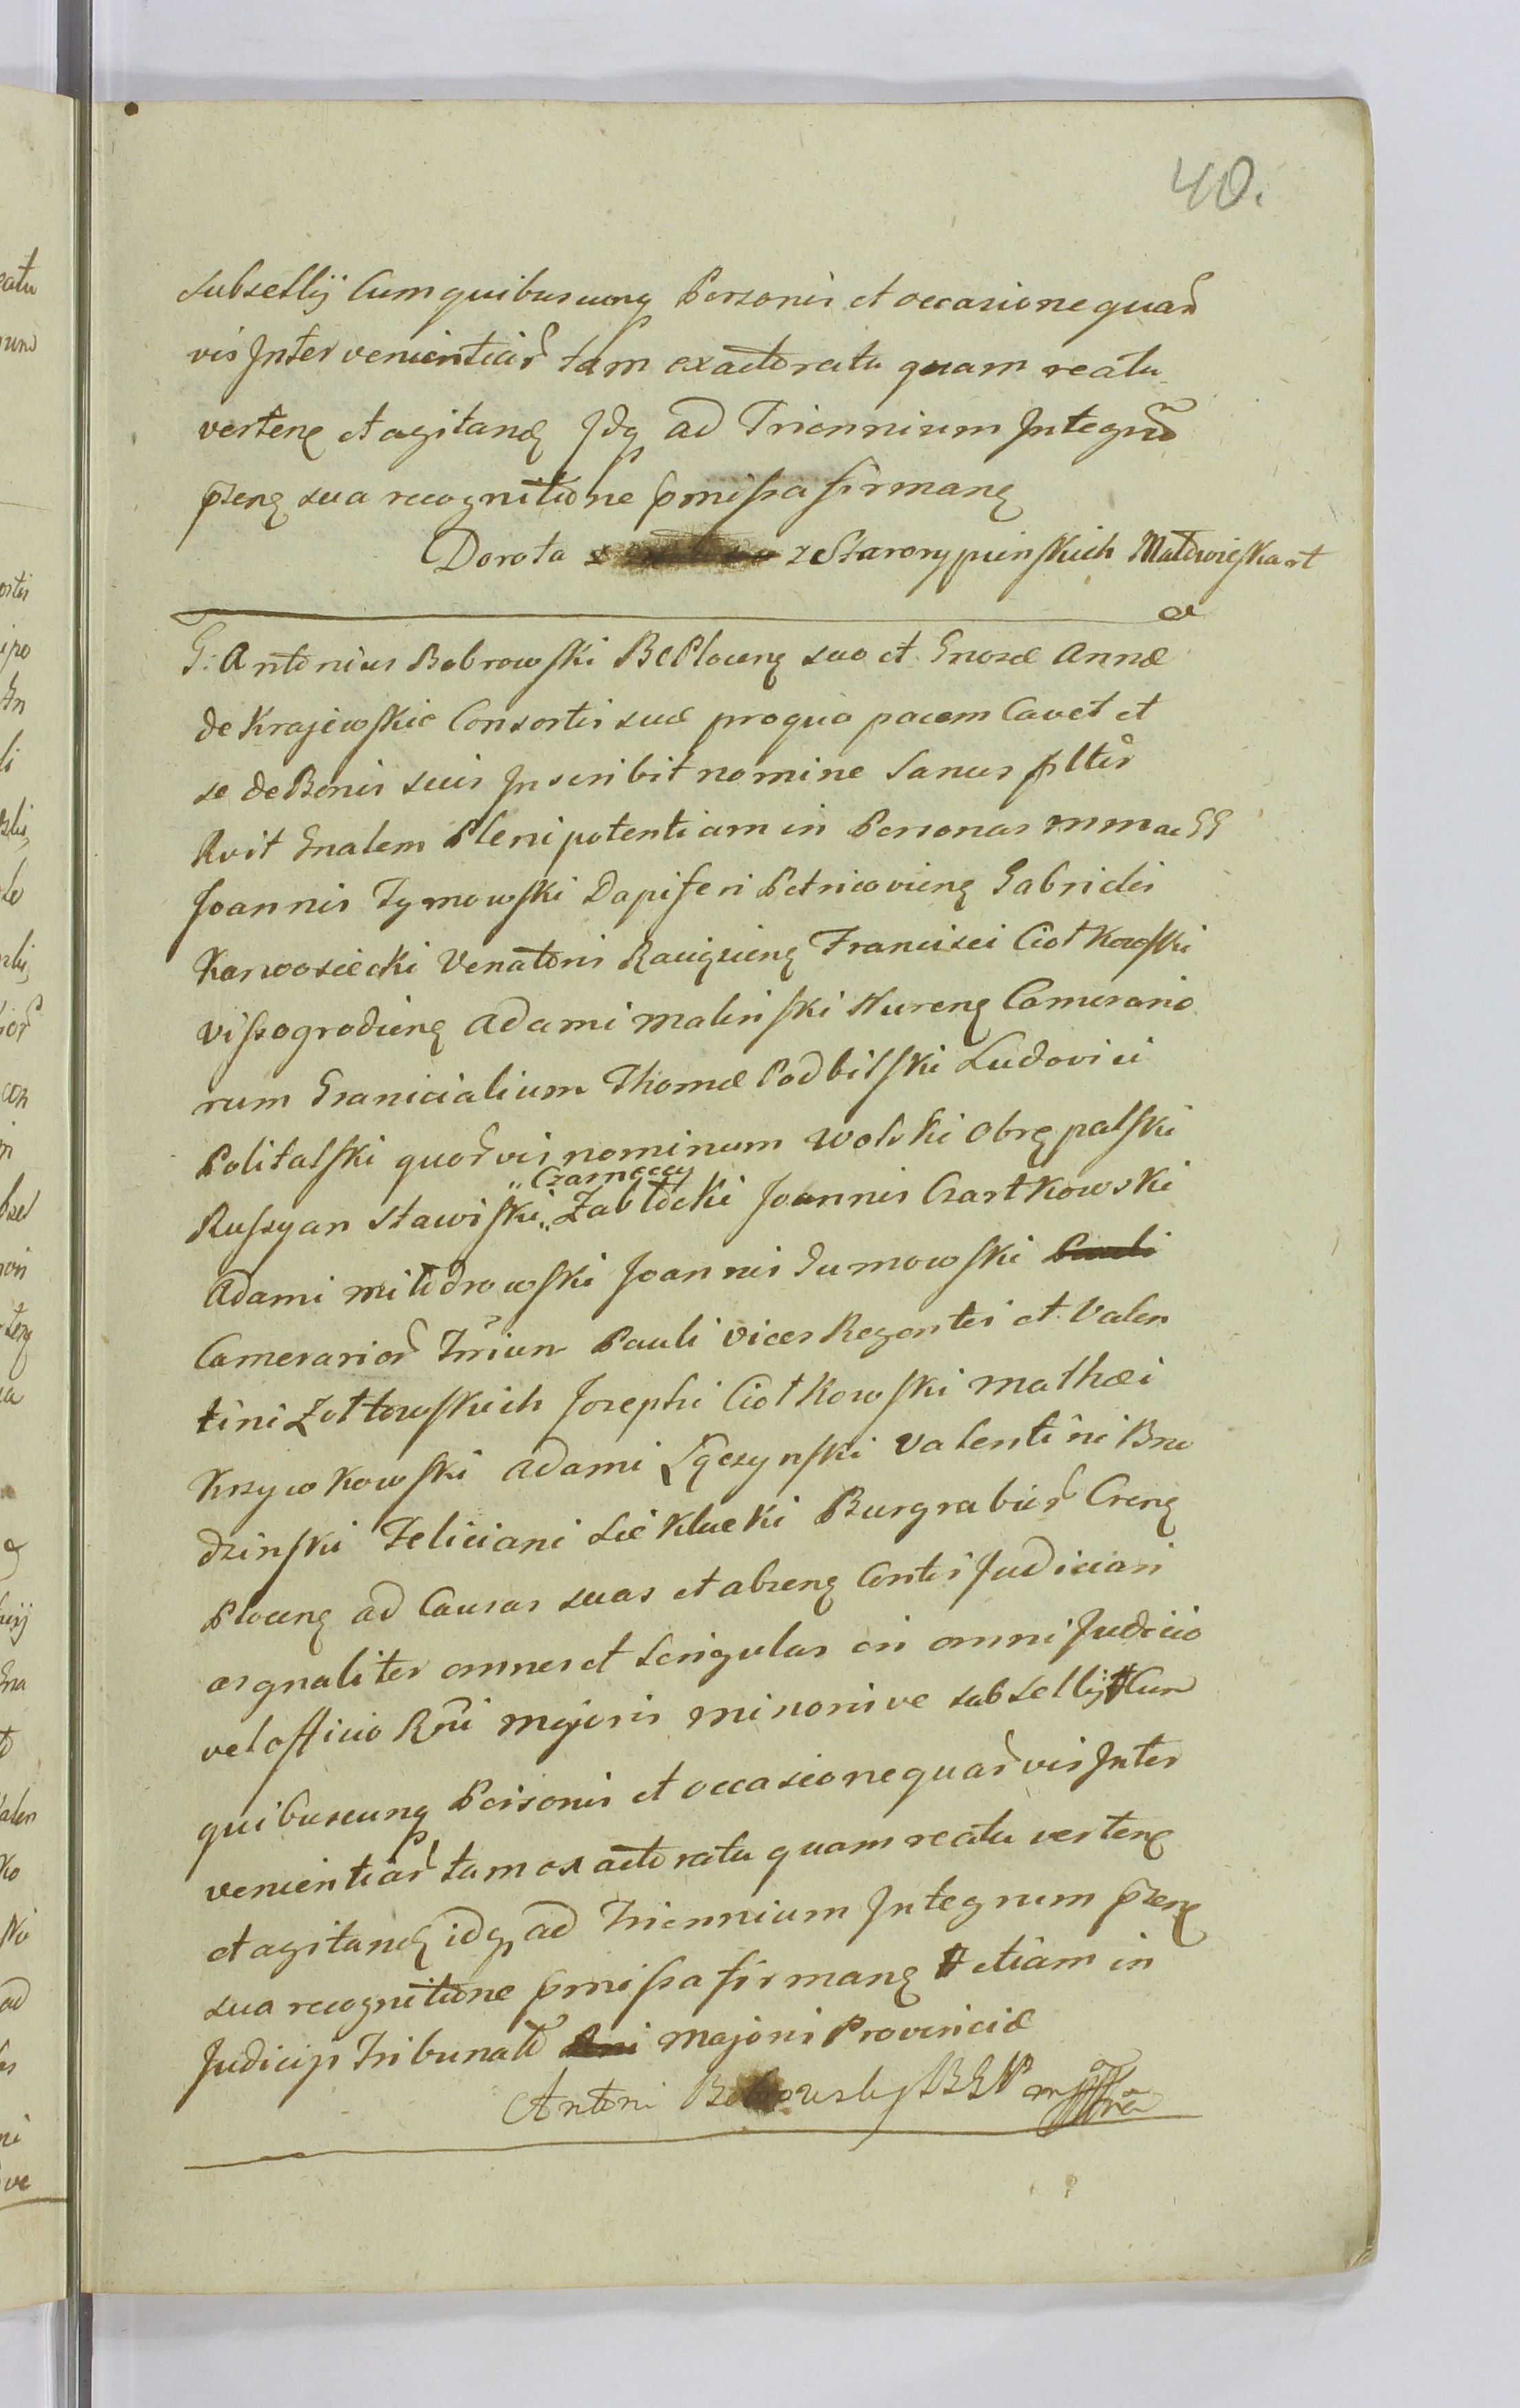 40.
subsellij Cum quibuscunq Personis et occasione quar
vis Intervenientiar tam ex actoratu quam reatu
verten et agitand Idq ad Triennium Integrum
pzen sua recognitione pmissa firman
Dorota z Starorypinskich
G: Antonius Bobrowski BCPlocen suo et Gnosæ Annæ
de Krajewskie Consortis suæ pro qua pacem Cavet et
se de Bonis suis Inscribit nomine Sanus plter
Rvit Gnalem Plenipotentiam in Personas mm ac GG
Joannis Tymowski Dapiferi Petricovien Gabrielis
Karwosiecki Venatoris Raciązien Francisci Ciołkowski
Vissogrodien Adami Malinski Nuren Camerario
rum Granicialium Thomæ Podbilski Ludovici
Politalski quorvis nominum Wolski Obrępalski
Russyan Stawiski „Czarneccy„ Zabłocki Joannis Czartkowski
Adami Milodrowski Joannis Gumowski Pauli
Camerarior Pauli Vices Regentis et Valen
tini Zołtowskich Josephi Ciołkowski Mathæi
Krzywkowski Adami Łączynski Valentini Bru
dzinski Feliciani Sieklucki Burgrabior Cren
Plocen ad Causas suas et absen Contis Judiciari
as gnaliter omnes et Singulas in omni Judicio
vel officio Rni majoris minorisve subsellij Cum
quibuscunq Personis et occasione quarvis Inter
venientiar tam ex actoratu quam reatu verten
et agitand idq ad Triennium Integrum pzen
sua recognitione pmissa firman etiam in
Judicijs Tribunal Rni Majoris Provinciæ
Antoni Bobrowsky BGP